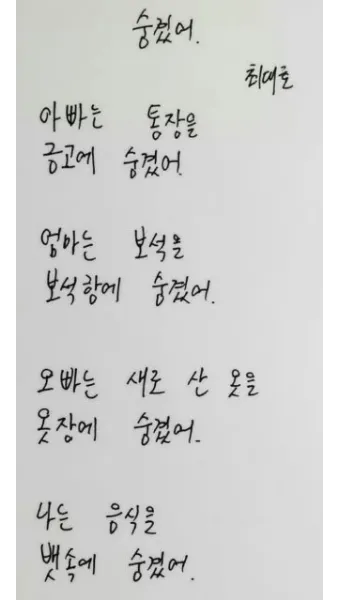 숨겼어.
최대호
아빠는 통장을
금고에 숨겼어.
엄마는 보석을
보석함에 숨겼어.
오빠는 새로 산 옷을
옷장에 숨겼어.
나는 음식을
뱃속에 숨겼어.